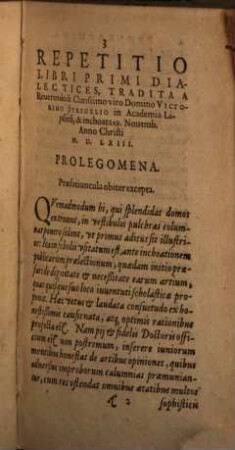 3
REPETITIO
LIBRI PRIMI DIA-
LECTICES, TRADITA A
Reuerendo & Clarissimo viro Domino VICTO-
RINO STRIGELIO in Academia Li-
psensi, & inchoata 22. Nouemb.
Anno Christi
M. D. LXIII.
PROLEGOMENA.
Præfatiuncula obiter excepta.
QVemadmodum hi, qui splendidas domos
extruunt, in vestibulo pulchras colum-
nas ponere solent, vt primus aditus sit illustri-
or: Ita in scholis vsitatum est, ante inchoationem
publicarum prælectionum, quædam initio præ-
fari de dignitate & necessitate earum artium,
quas quisque suo loco iuuentuti scholasticæ pro-
ponit. Hæc vetus & laudata consuetudo ex ho-
nestissimis causis nata, atq; optimis rationibus
profecta est. Nam pij & fidelis Doctoris offi-
cium est, non postremum, inserere iuniorum
mentibus honestas de artibus opiniones, quibus
aduersus improborum calumnias præmunian-
tur, cum res ostendat omnibus ætatibus multos
A 2 sophisticè